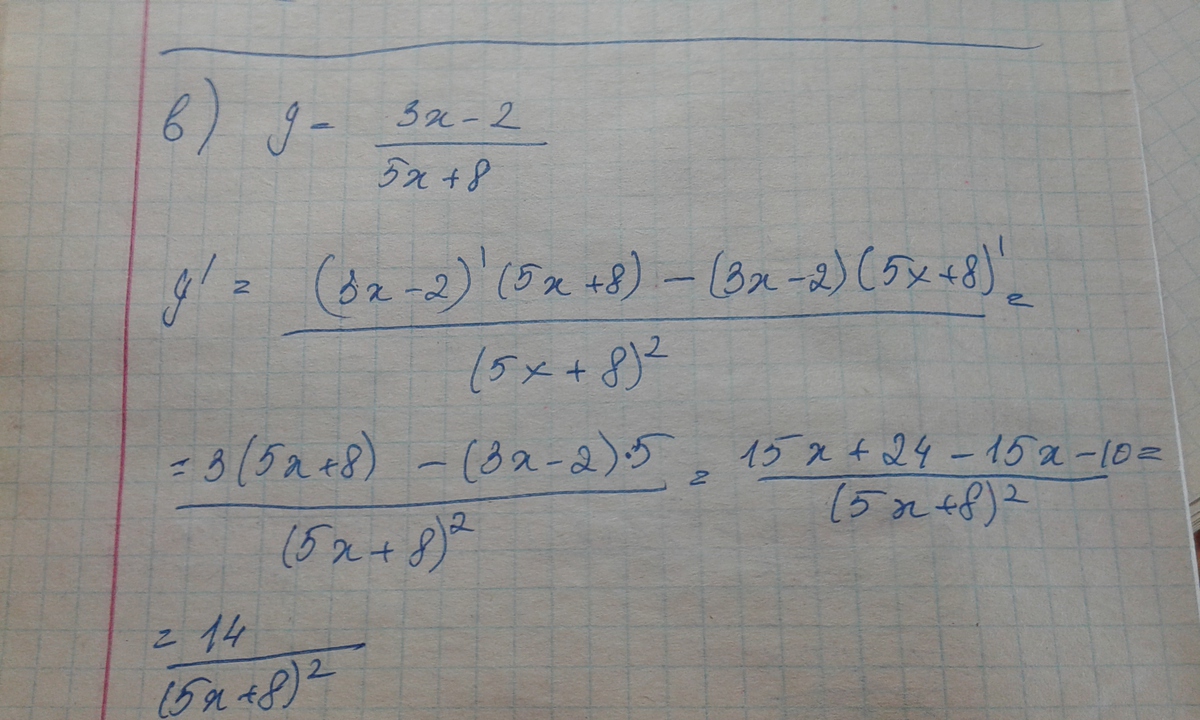 в) y = \frac{3x-2}{5x+8}
y' = \frac{(3x-2)'(5x+8) - (3x-2)(5x+8)'}{(5x+8)^2} =
= \frac{3(5x+8) - (3x-2)·5}{(5x+8)^2} = \frac{15x+24-15x-10}{(5x+8)^2} =
= \frac{14}{(5x+8)^2}